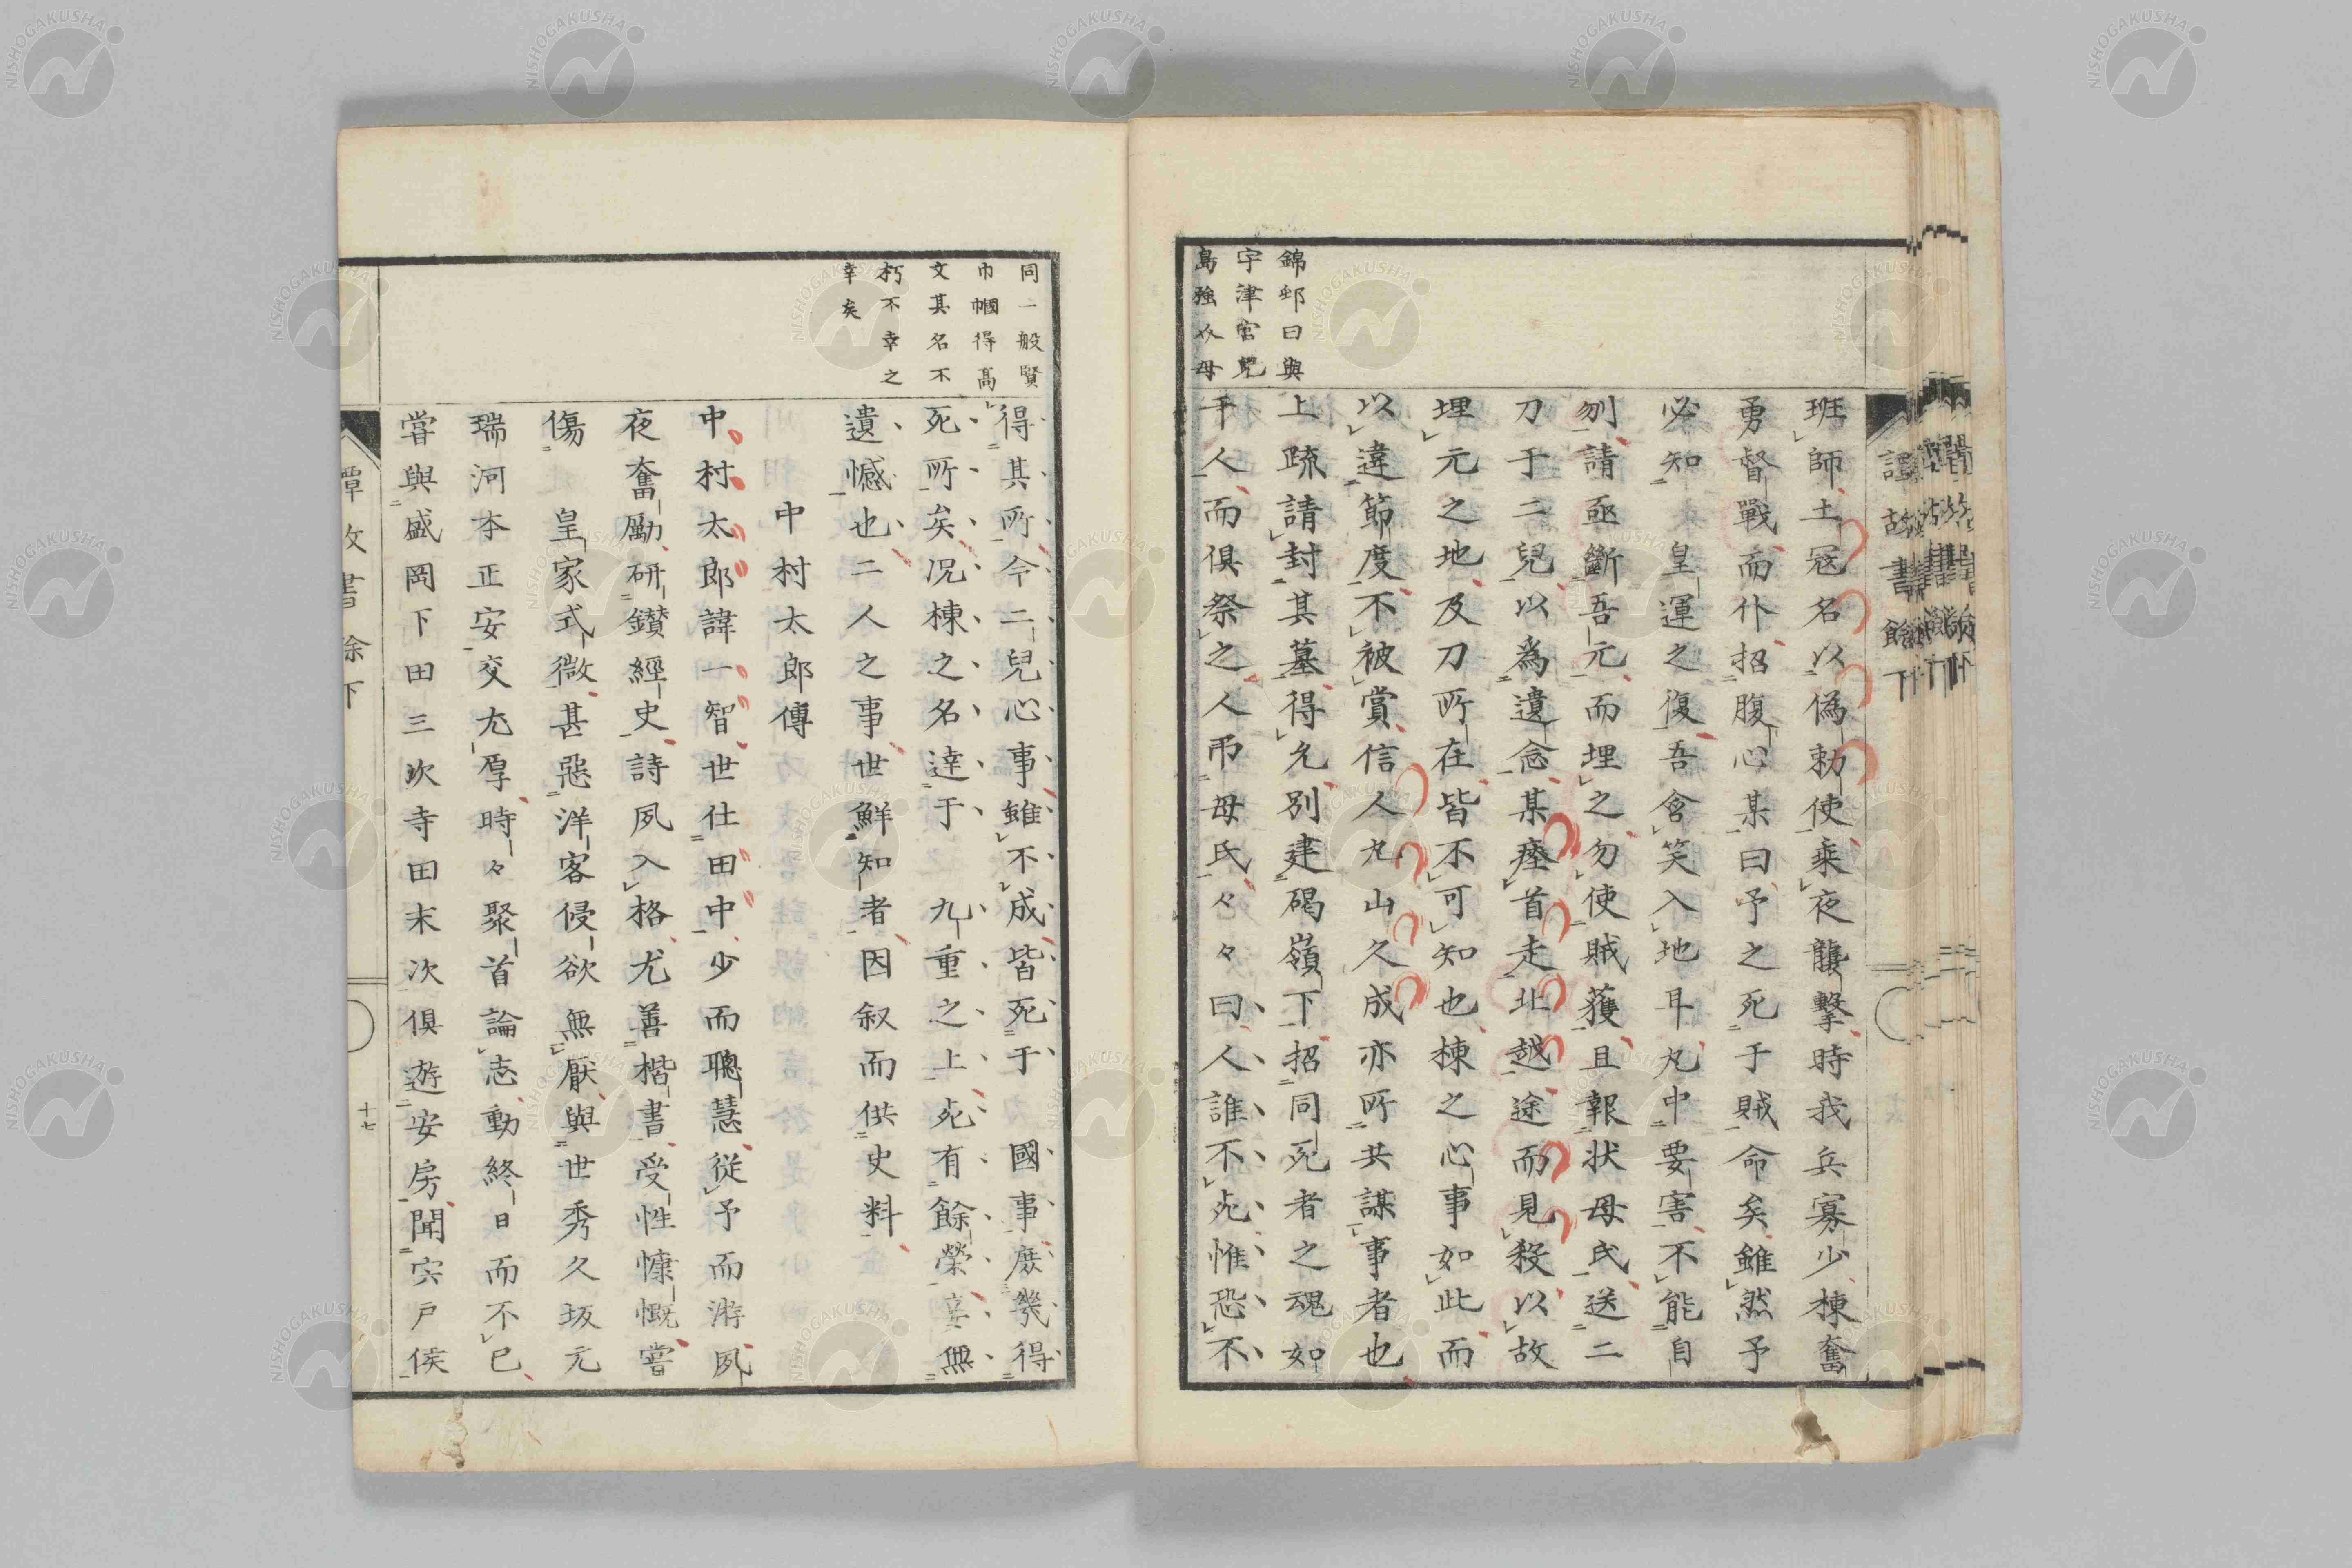 錦邨曰與
宇津宮兒
島強介母
班師土冦名以僞勅使乘夜襲擊時我兵寡少棟奮
勇督戰而仆招腹心某曰予之死于賊命矣雖然予
必知 皇運之復吾含笑入地耳丸中要害不能自
刎請亟斷吾元而埋之勿使賊獲且報状母氏送二
刀于二兒以爲遺念某瘞首走北越途而見殺以故
埋元之地及刀所在皆不可知也棟之心事如此而
以違節度不被賞信人丸山久成亦所共謀事者也
上疏請封其墓得允別建碣嶺下招同死者之魂如
干人而俱祭之人人吊母氏々々曰人誰不死惟恐不
同一般賢
巾幗得高
文其名不
朽不幸之
幸矣
得其所今二兒心事雖不成皆死于 國事庶幾得
死所矣况棟之名達于 九重之上死有餘榮妾無
遺憾也二人之事世鮮知者因叙而供史料
中村太郎傳
中村太郎諱一智世仕田中少而聰慧從予而游夙
夜奮勵研鑚經史詩夙入格尤善楷書受性慷慨嘗
傷 皇家式微甚惡洋客侵欲無厭與世秀久坂元
瑞河本正安交尤厚時々聚首論志動終日而不已
嘗與盛岡下田三次寺田末次俱遊安房聞宍戸侯
譚故書餘下
十七
譚故書餘下
NISHOGAKUSHA